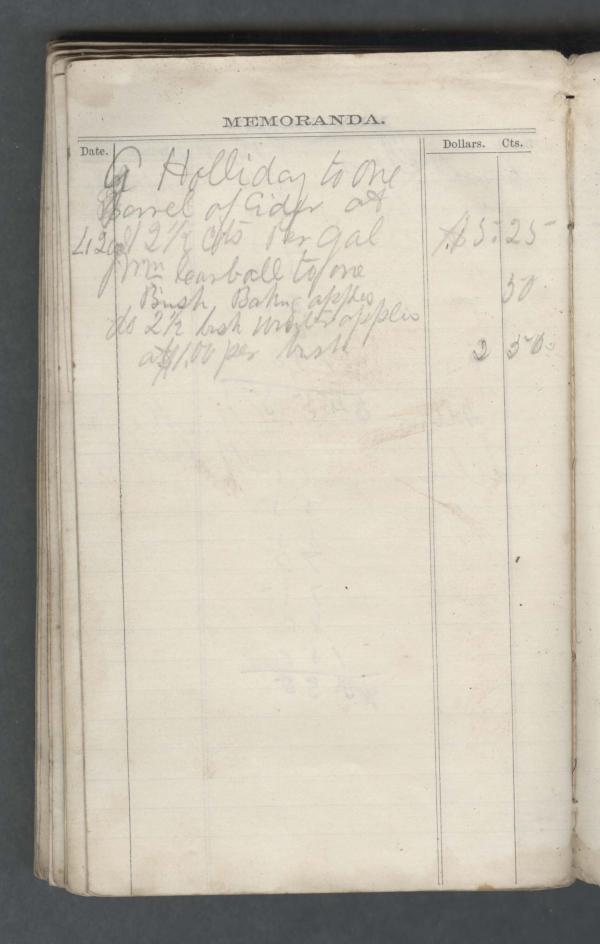 MEMORANDA.
Date. Dollars. Cts.
G Holliday to one
Barrel of Cider at
42 gal 12½ cts Per gal $5.25
Wm to one
Bush. Baking apples 50
do 2½ bush apples
at $1.00 per bush 2 50